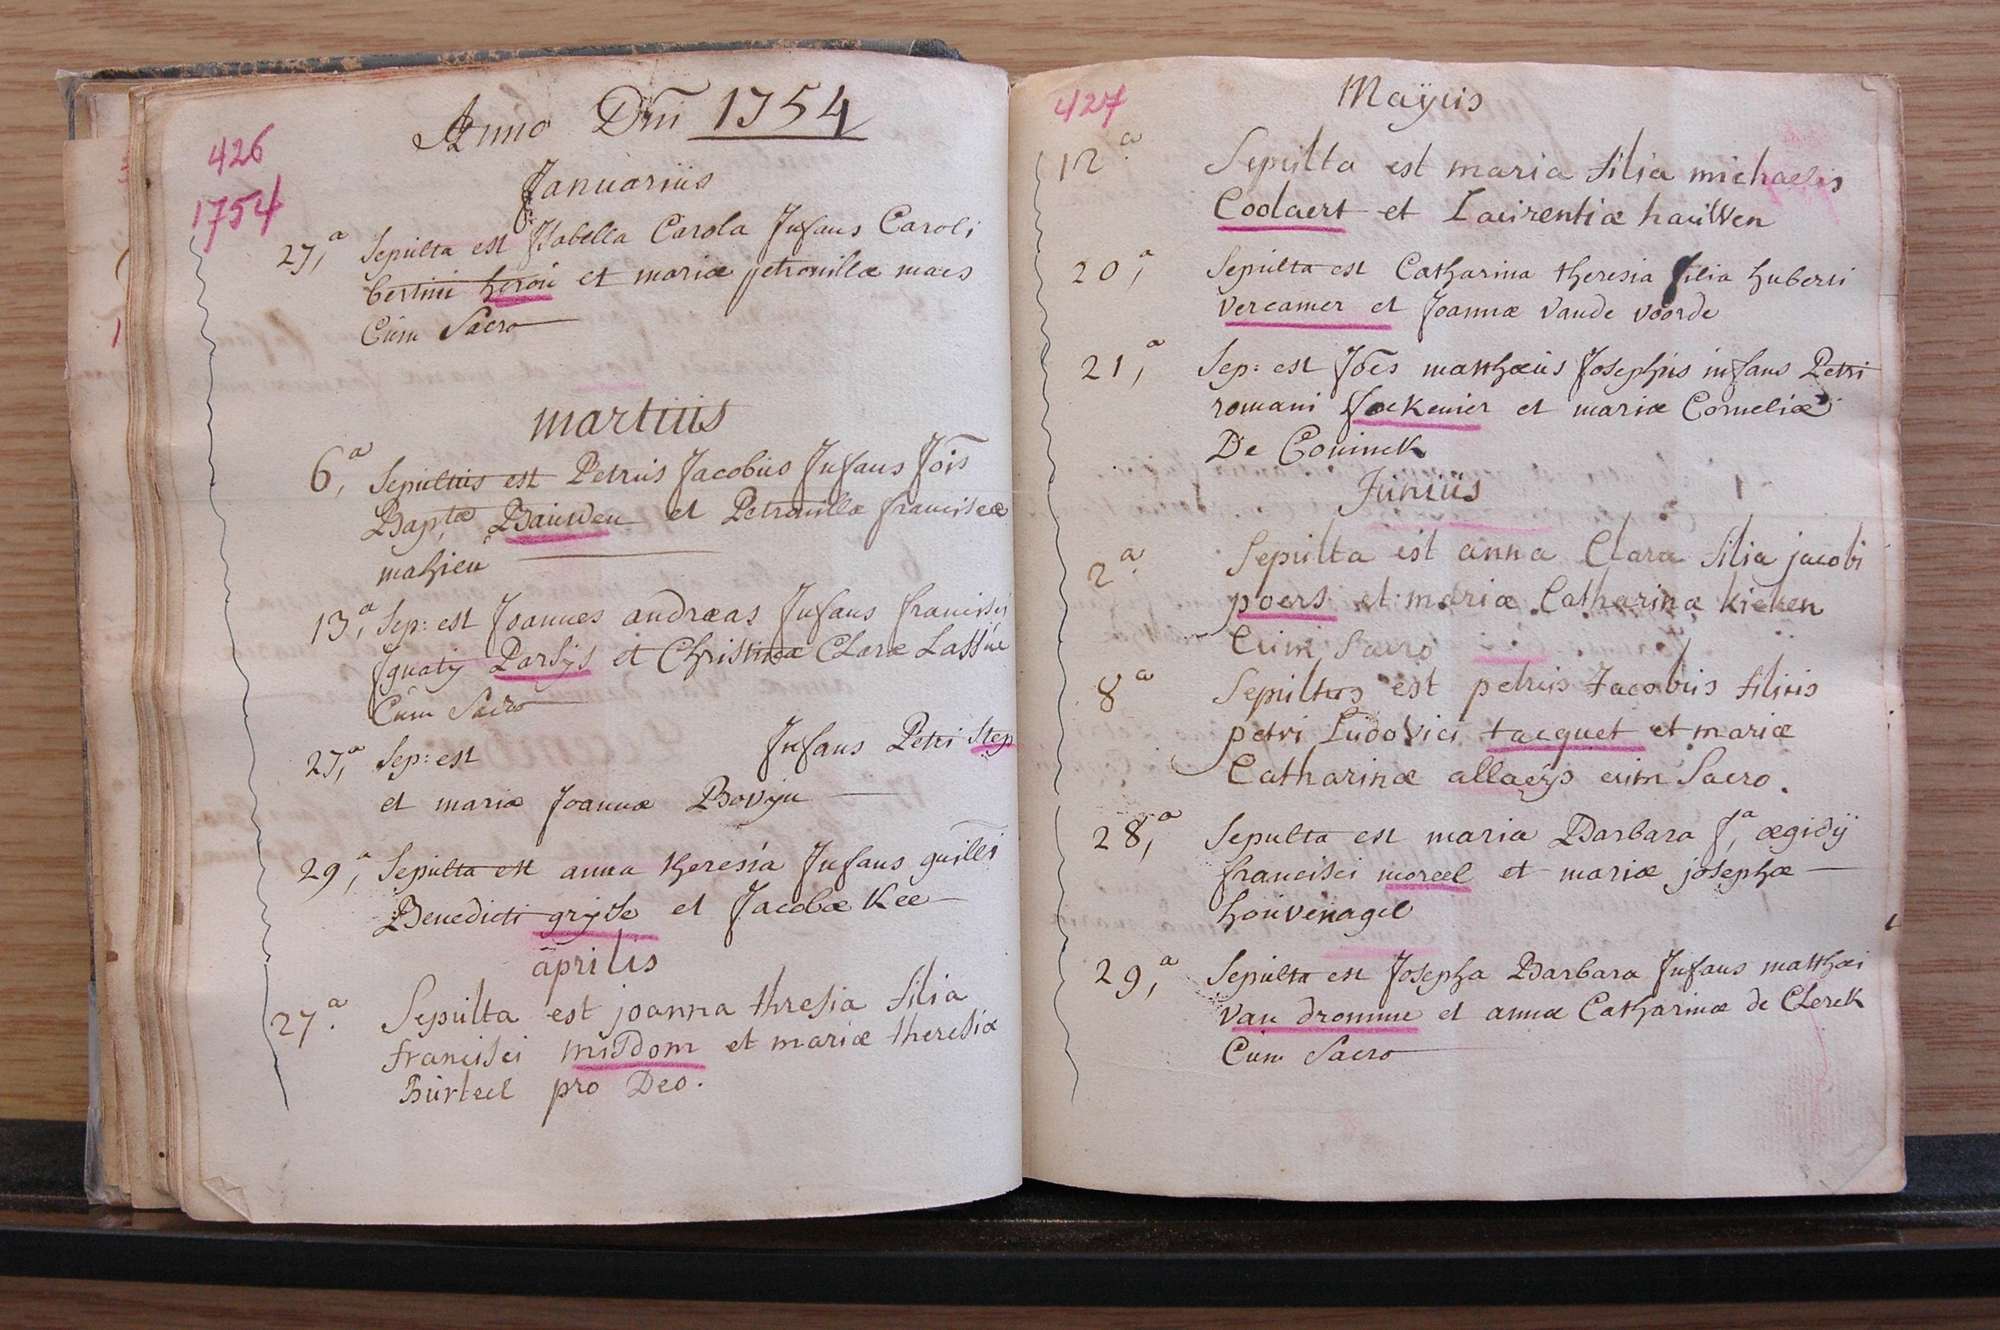 426
1754
Anno Dni 1754
Januarius
27,a Sepulta est Isabella Carola Infans Caroli
bertini heroü et mariæ petronillæ maes
Cum Sacro
martius
6,a Sepultus est Petrus Jacobus Infans Jois
Bap,tæ Bauwen et Petronillæ franciscæ
mahieu
13,a Sep: est Joannes andræas Infans francisci
Ignatij Parsijs et Christinæ Claræ Lassüe
Cum Sacro
27,a Sep: est Infans Petri Step
et mariæ Joannæ Bovijn
29,a Sepulta est anna theresia Infans guilli
Benedicti grijse et Jacobæ Kee
aprilis
27a. Sepulta est joanna thresia filia
francisci misdom et mariæ theresiæ
Burteel pro Deo.
427
Mayus
12a. Sepulta est maria filia michaelis
Coolaert et Laurentiæ hauwen
20,a Sepulta est Catharina theresia filia huberti
vercamer et Joannæ vande voorde
21,a Sep: est Jões matthæus Josephus infans Petri
romani Hoekenier et mariæ Corneliæ
De Coninck
Junius
2a. Sepulta est anna Clara filia jacobi
poers et mariæ Catharinæ kieken
Cum Sacro
8a Sepultus est petrus Jacobus filius
petri Ludovici tacquet et mariæ
Catharinæ allaeijs cum Sacro.
28,a Sepulta est maria Barbara f,a ægidij
francisci moreel et mariæ josephæ
houvenagel
29,a Sepulta est Josepha Barbara Infans matthæi
van dromme et annæ Catharinæ de Clerck
Cum Sacro